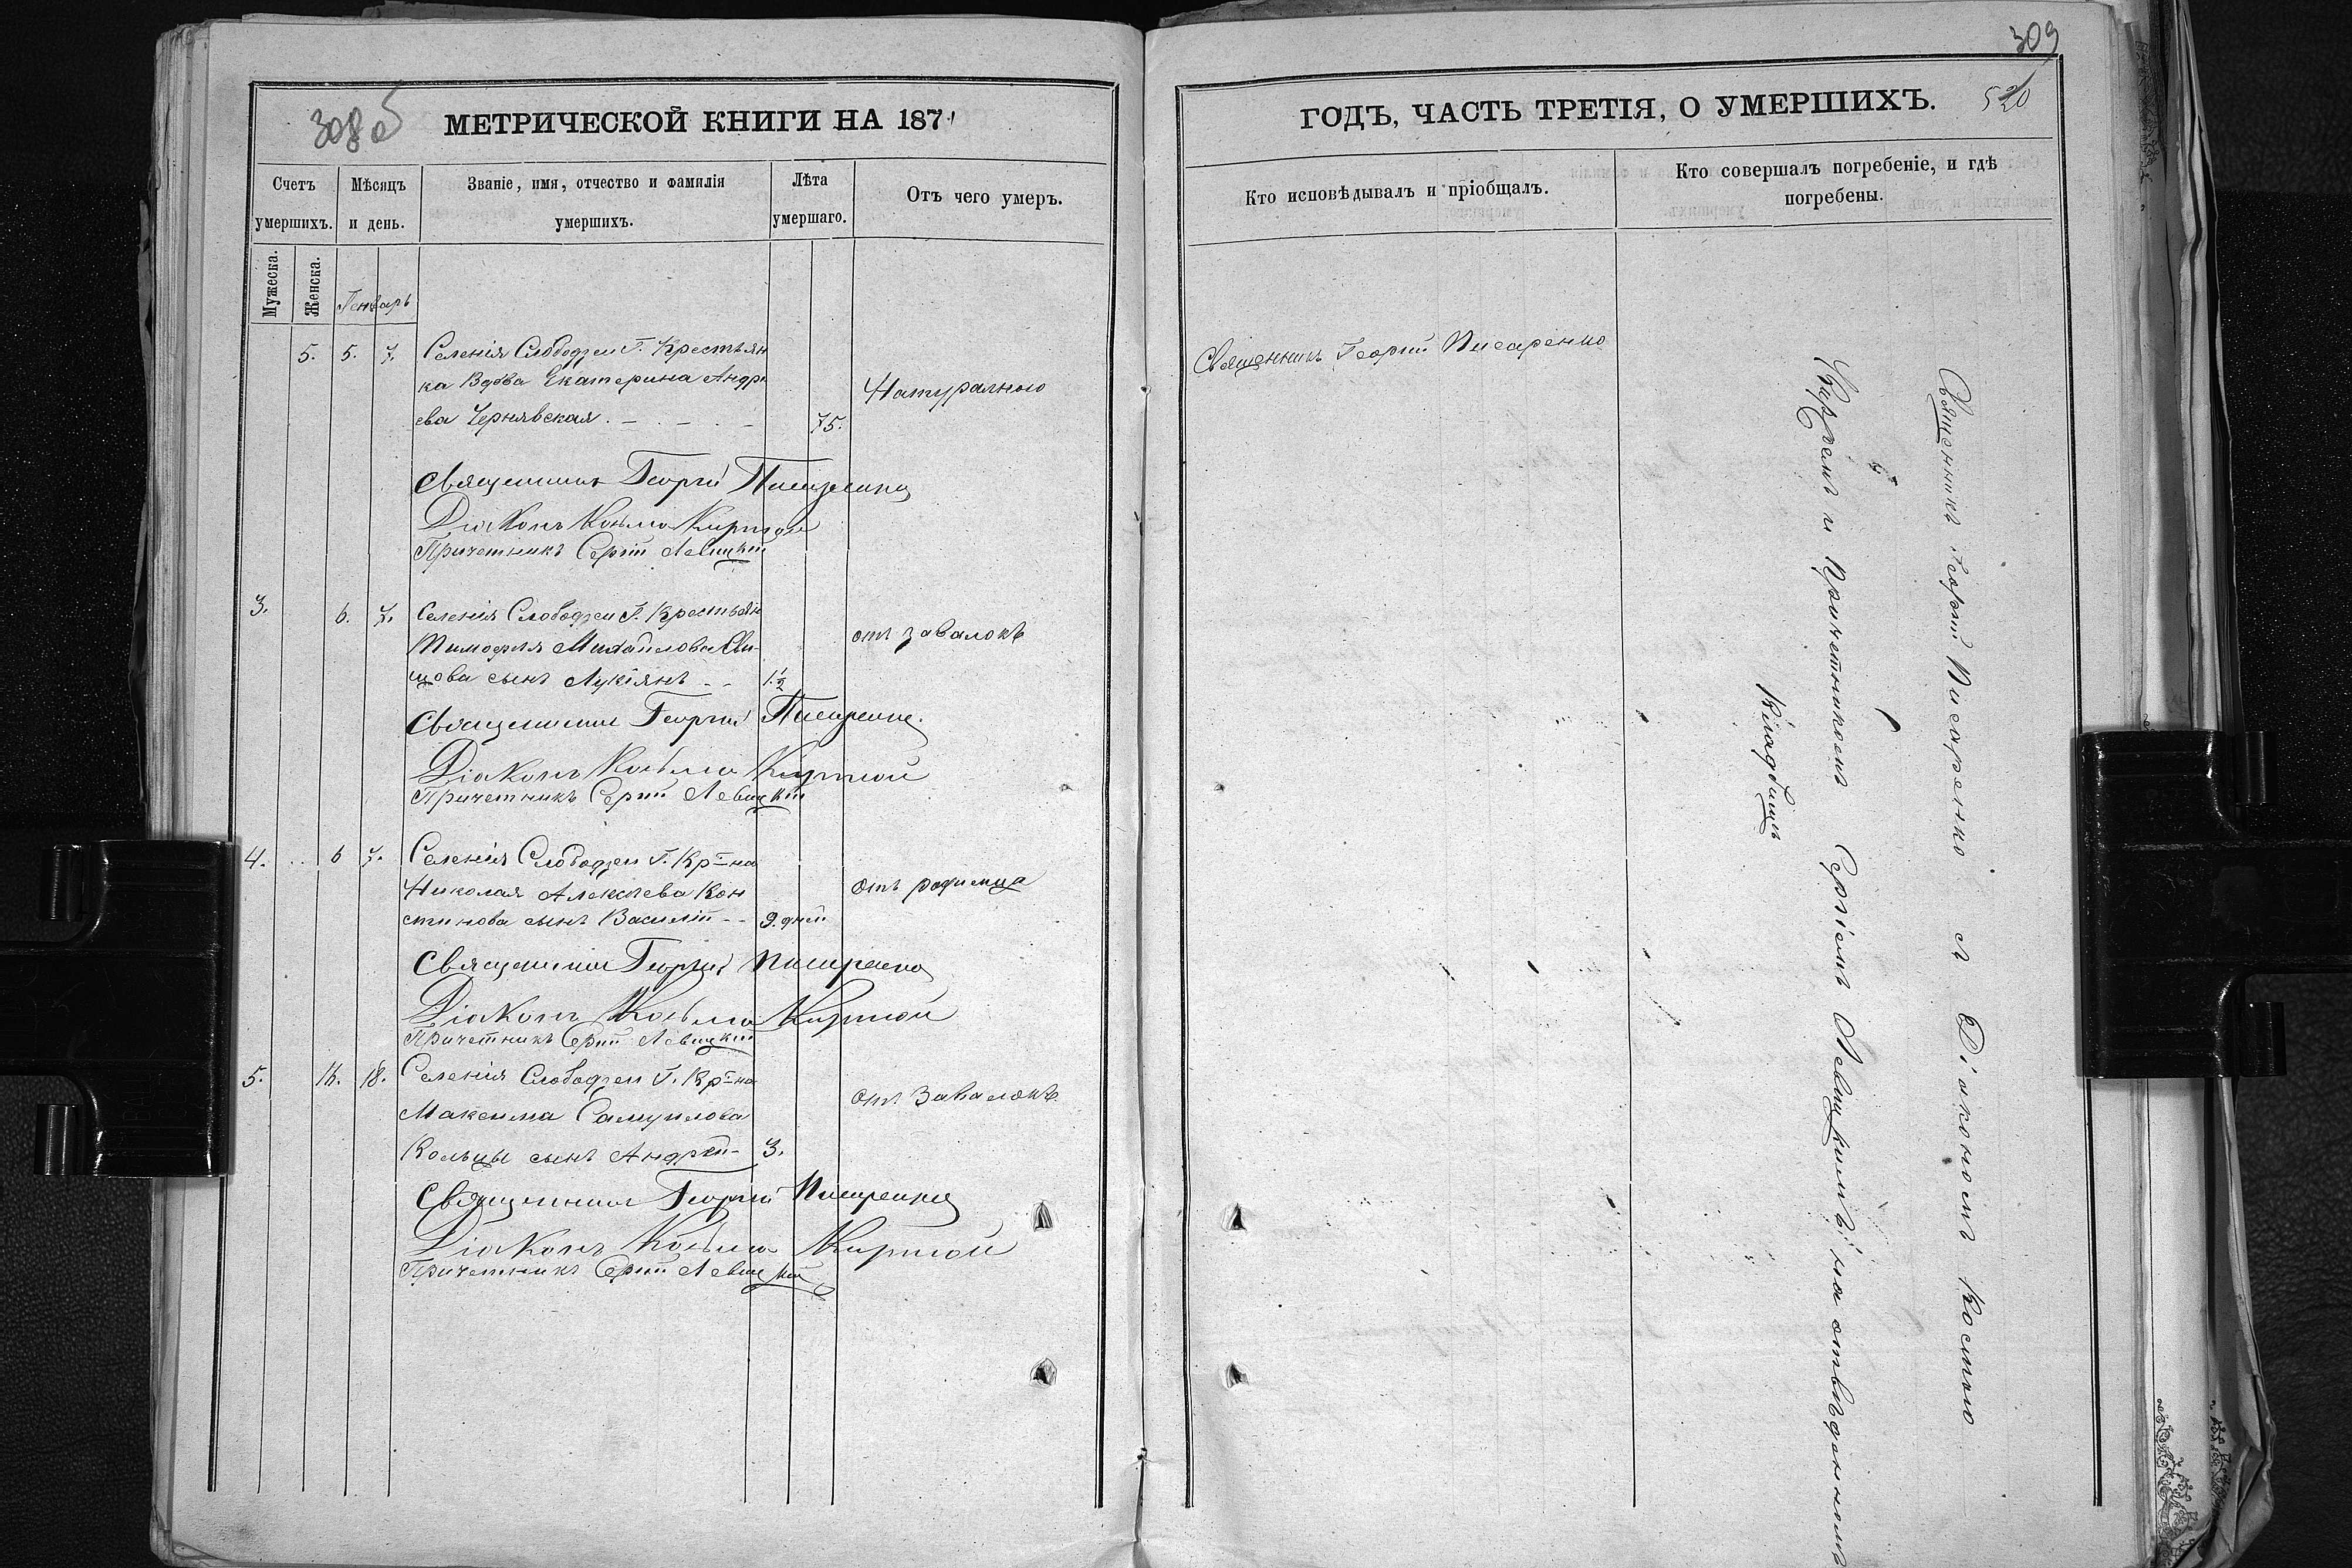 308 об
МЕТРИЧЕСКОЙ КНИГИ НА 1871
Счетъ умершихъ.
Мѣсяцъ и день.
Званіе, имя, отчество и фамилія умершихъ.
Лѣта умершаго.
Отъ чего умеръ.
Мужеска.
Женска.
Генварь
5. 5. 7. Селенія Слободзеи Г. Крестьян
ка Вдова Екатерина Андре
ева Чернявская. 75.
Натурально
Священникъ Георгій Писаренко
Діаконъ Косьма Кирпой
Причетникъ Сергій Левицкій
3. 6. 7. Селенія Слободзеи Г. Крестьян
Тимофея Михайлова
цова сынъ Лукіянъ 1 1/2
отъ завалокъ
Священникъ Георгій Писаренко.
Діаконъ Косьма Кирпой
Причетникъ Сергій Левицкій
4. 6 7. Селенія Слободзеи Г. Кр-на
Николая Алексѣева Кон
стинова сынъ Василій 9. дней
отъ родимца
Священникъ Георгій Писаренко
Діаконъ Косьма Кирпой
Причетникъ Сергій Левицкій
5. 16. 18. Селенія Слободзеи Г. Кр-на
Максима Самуилова
Кольцы сынъ Андрей 3.
отъ Завалокъ
Священникъ Георгій Писаренко
Діаконъ Косьма Кирпой
Причетникъ Сергій Левицкій
309
520
ГОДЪ, ЧАСТЬ ТРЕТІЯ, О УМЕРШИХЪ.
Кто исповѣдывалъ и пріобщалъ.
Кто совершалъ погребеніе, и гдѣ
погребены.
Священникъ Георгій Писаренко
Священникъ Георгій Писаренко с Діакономъ Космою
и Причетникомъ Сергіемъ Левицкимъ на отведенномъ
Кладбищѣ